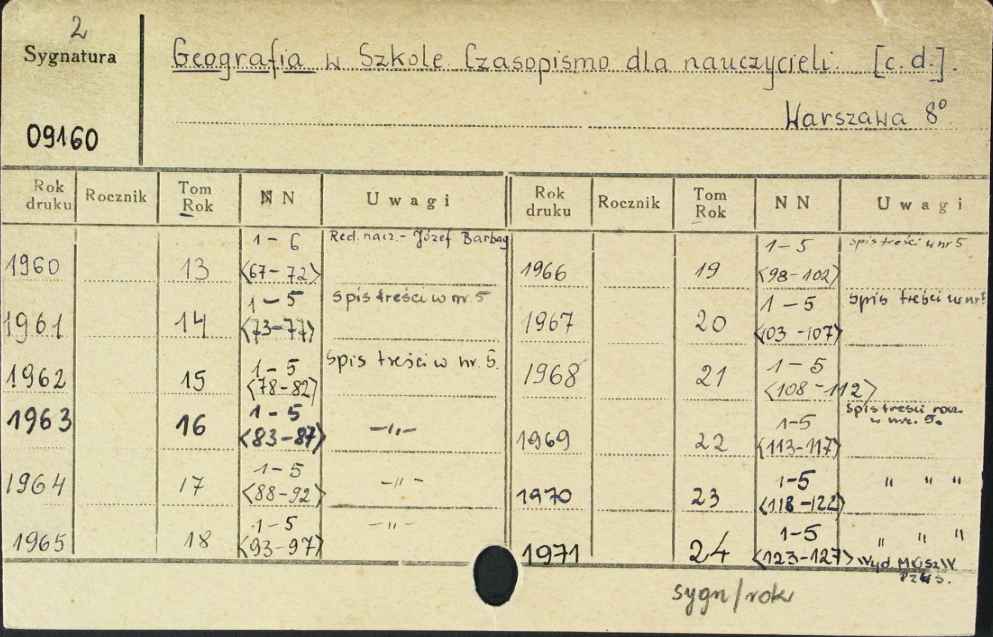 2
Sygnatura
Geografia w Szkole Czasopismo dla nauczycieli. [c.d.].
Warszawa 8°
09160
Rok druku Rocznik Tom Rok N N Uwagi
1960 13 1-6 <67-72> Red. nacz. - Józef Barbag
1961 14 1-5 <73-77> Spis treści w nr 5
1962 15 1-5 <78-82> Spis treści w nr. 5.
1963 16 1-5 <83-87> -"-
1964 17 1-5 <88-92> -"-
1965 18 1-5 <93-97> -"-
Rok druku Rocznik Tom Rok N N Uwagi
1966 19 1-5 <98-102> spis treści w nr 5
1967 20 1-5 <103-107> Spis treści w nr 5
1968 21 1-5 <108-112>
1969 22 1-5 <113-117> Spis treści rocz. w nr. 5.
1970 23 1-5 <118-122> " " "
1971 24 1-5 <123-127> " " "
Wyd.
sygn/rok